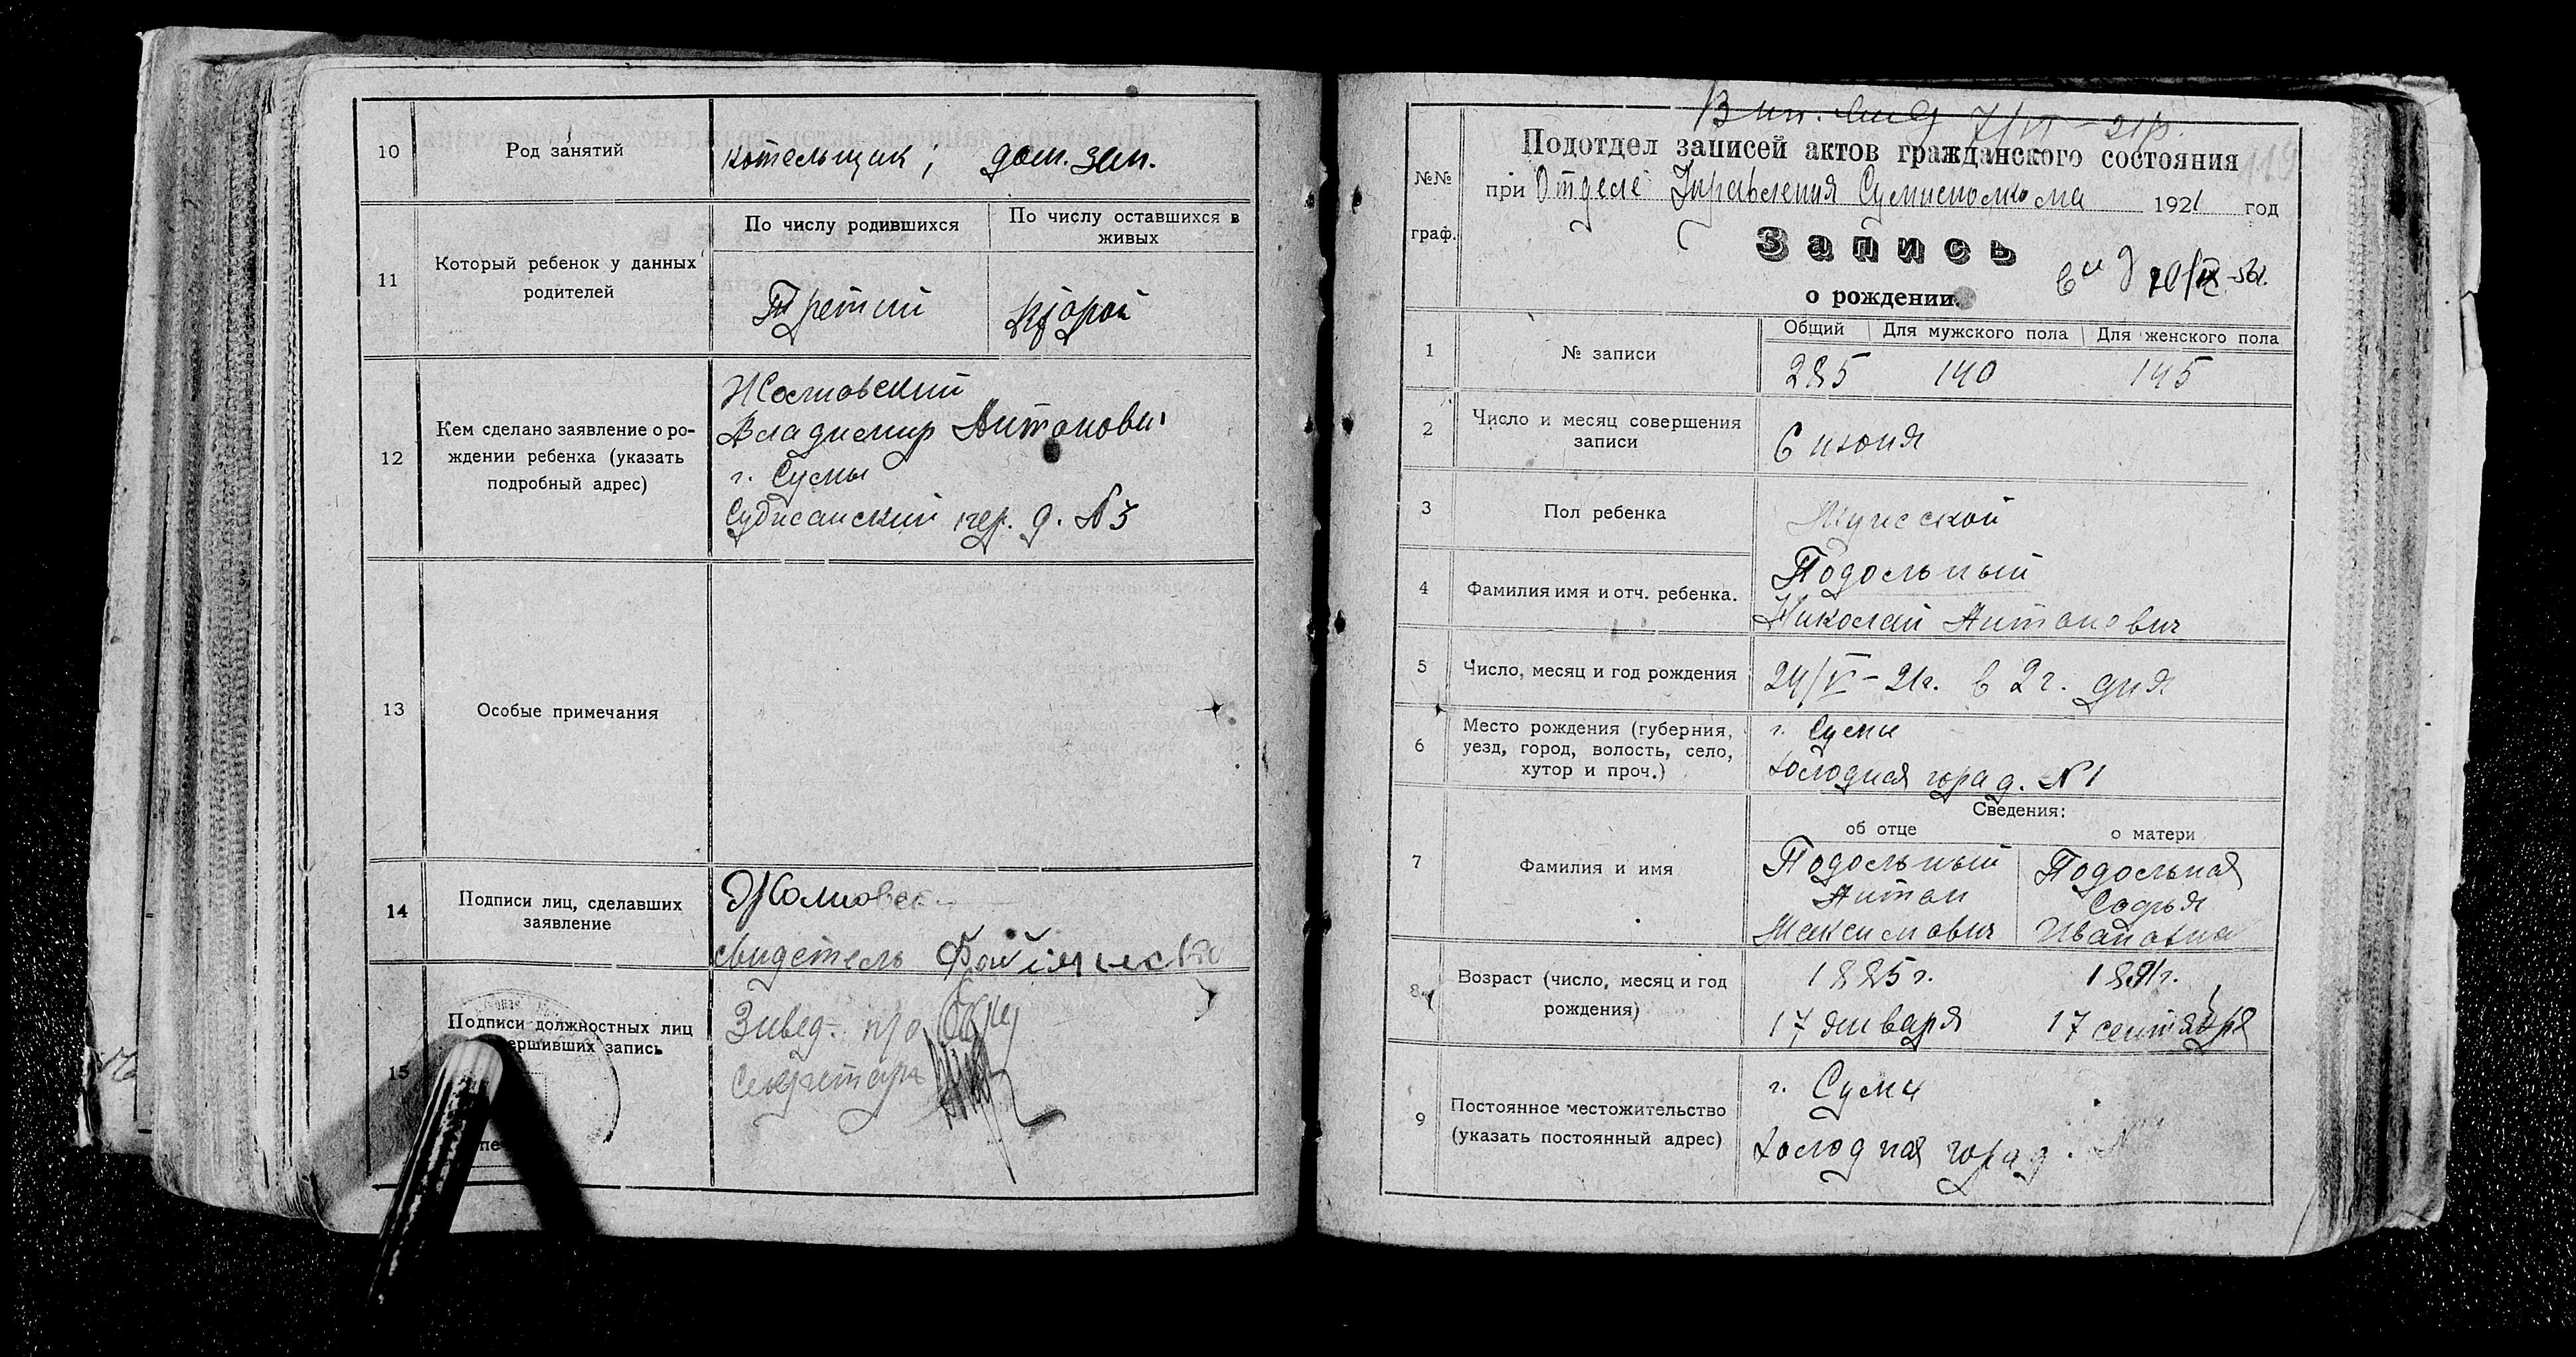 10
Род занятий
котельщик; дом. зан.
11
Который ребенок у данных
родителей
По числу родившихся
По числу оставшихся в
живых
Третий
второй
12
Кем сделано заявление о ро-
ждении ребенка (указать
подробный адрес)
Жолновский
Владимир Антонович
г. Сумы
Суджанский пер. д. №3
13
Особые примечания
14
Подписи лиц, сделавших
заявление
Жолновск
свидетель
15
Подписи должностных лиц
ершивших запись
Завед.
Секретарь
7/VI - 21р.
№№
граф.
Подотдел записей актов гражданского состояния
119
при Отделе Управления Сумисполкома 1921 год
Запись
о рождении.
1
№ записи
Общий
Для мужского пола
Для женского пола
285
140
145
2
Число и месяц совершения
записи
6 июня
3
Пол ребенка
Мужской
4
Фамилия имя и отч. ребенка.
Подольный
Николай Антонович
5
Число, месяц и год рождения
24/V - 21г. в 2 г. дня
6
Место рождения (губерния,
уезд, город, волость, село,
хутор и проч.)
г. Сумы
Холодная гора д. №1
Сведения:
об отце
о матери
7
Фамилия и имя
Подольный
Антон
Максимович
Подольная
Софья
Ивановна
8
Возраст (число, месяц и год
рождения)
1885 г.
17 января
1891г.
17 сентября
9
Постоянное местожительство
(указать постоянный адрес)
г. Сумы
Холодная гора д. №